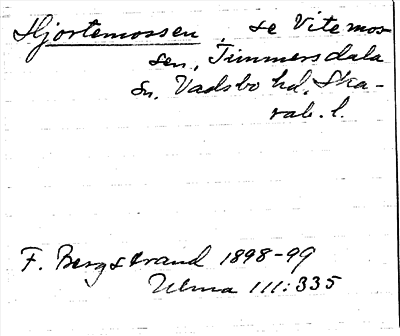 Hjortemossen, se Vitemos-
sen, Timmersdala
sn, Vadsbo hd, Ska-
rab. l.
F. Bergstrand 1898-99
Ulma 111:335